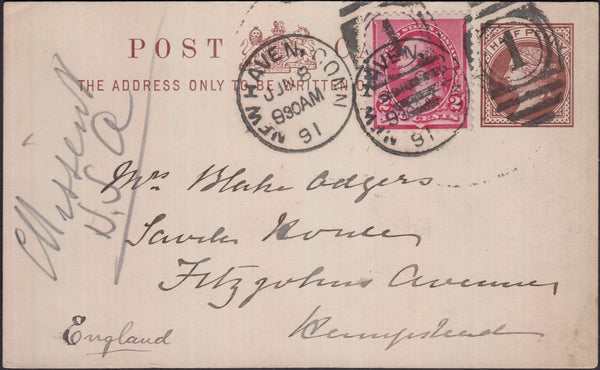 POST
THE ADDRESS ONLY TO BE WRITTEN
HALF PENNY
1
1
NEW HAVEN, CONN.
JUN 8
930AM
91
NEW HAVEN
930
91
2
Missent
U.S.A
Mrs Blake Odgers
House
Fitzjohns Avenue
Hempstead
England